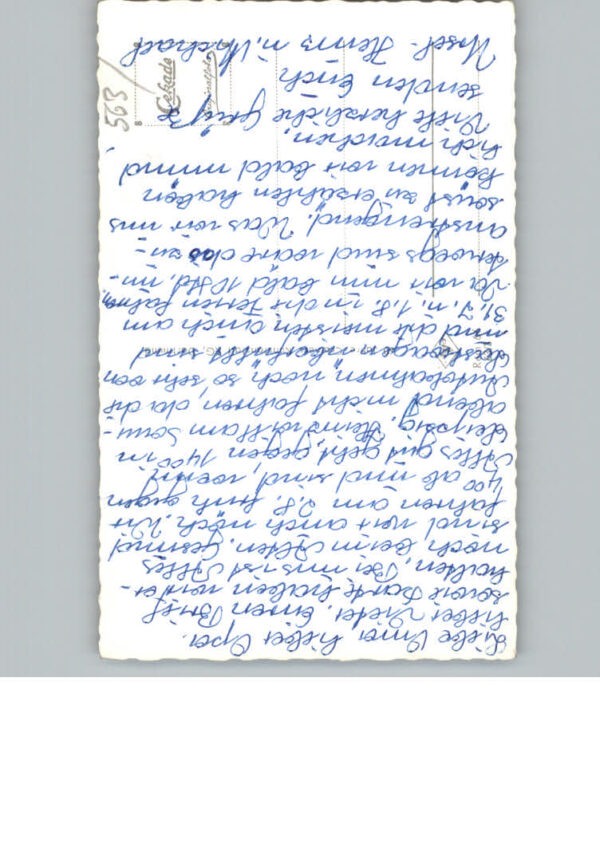 Liebe Oma, lieber Opa.
lieber Dieter. Euren Brief
sowie Karte haben wir er-
halten. Bei uns ist Alles
noch beim Alten. Gesund
sind wir auch noch. Wir
fahren am 2.8. früh gegen
4,00 ab und sind, wenn
Alles gut geht, gegen 14,00 in
Leipzig. Heinz will am Sonn-
abend nicht fahren, da die
Autobahnen noch so sehr von
Lastwagen überfüllt sind
und die meisten auch am
31.7. u. 1.8. in die Ferien fahren.
Da wir nun bald 10 Std. un-
terwegs sind wäre das zu
anstrengend. Was wir uns
sonst zu erzählen haben
können wir bald münd
lich machen.
Viele herzliche Grüße
senden Euch
Ursel - Heinz u. Michael
563
Cekade